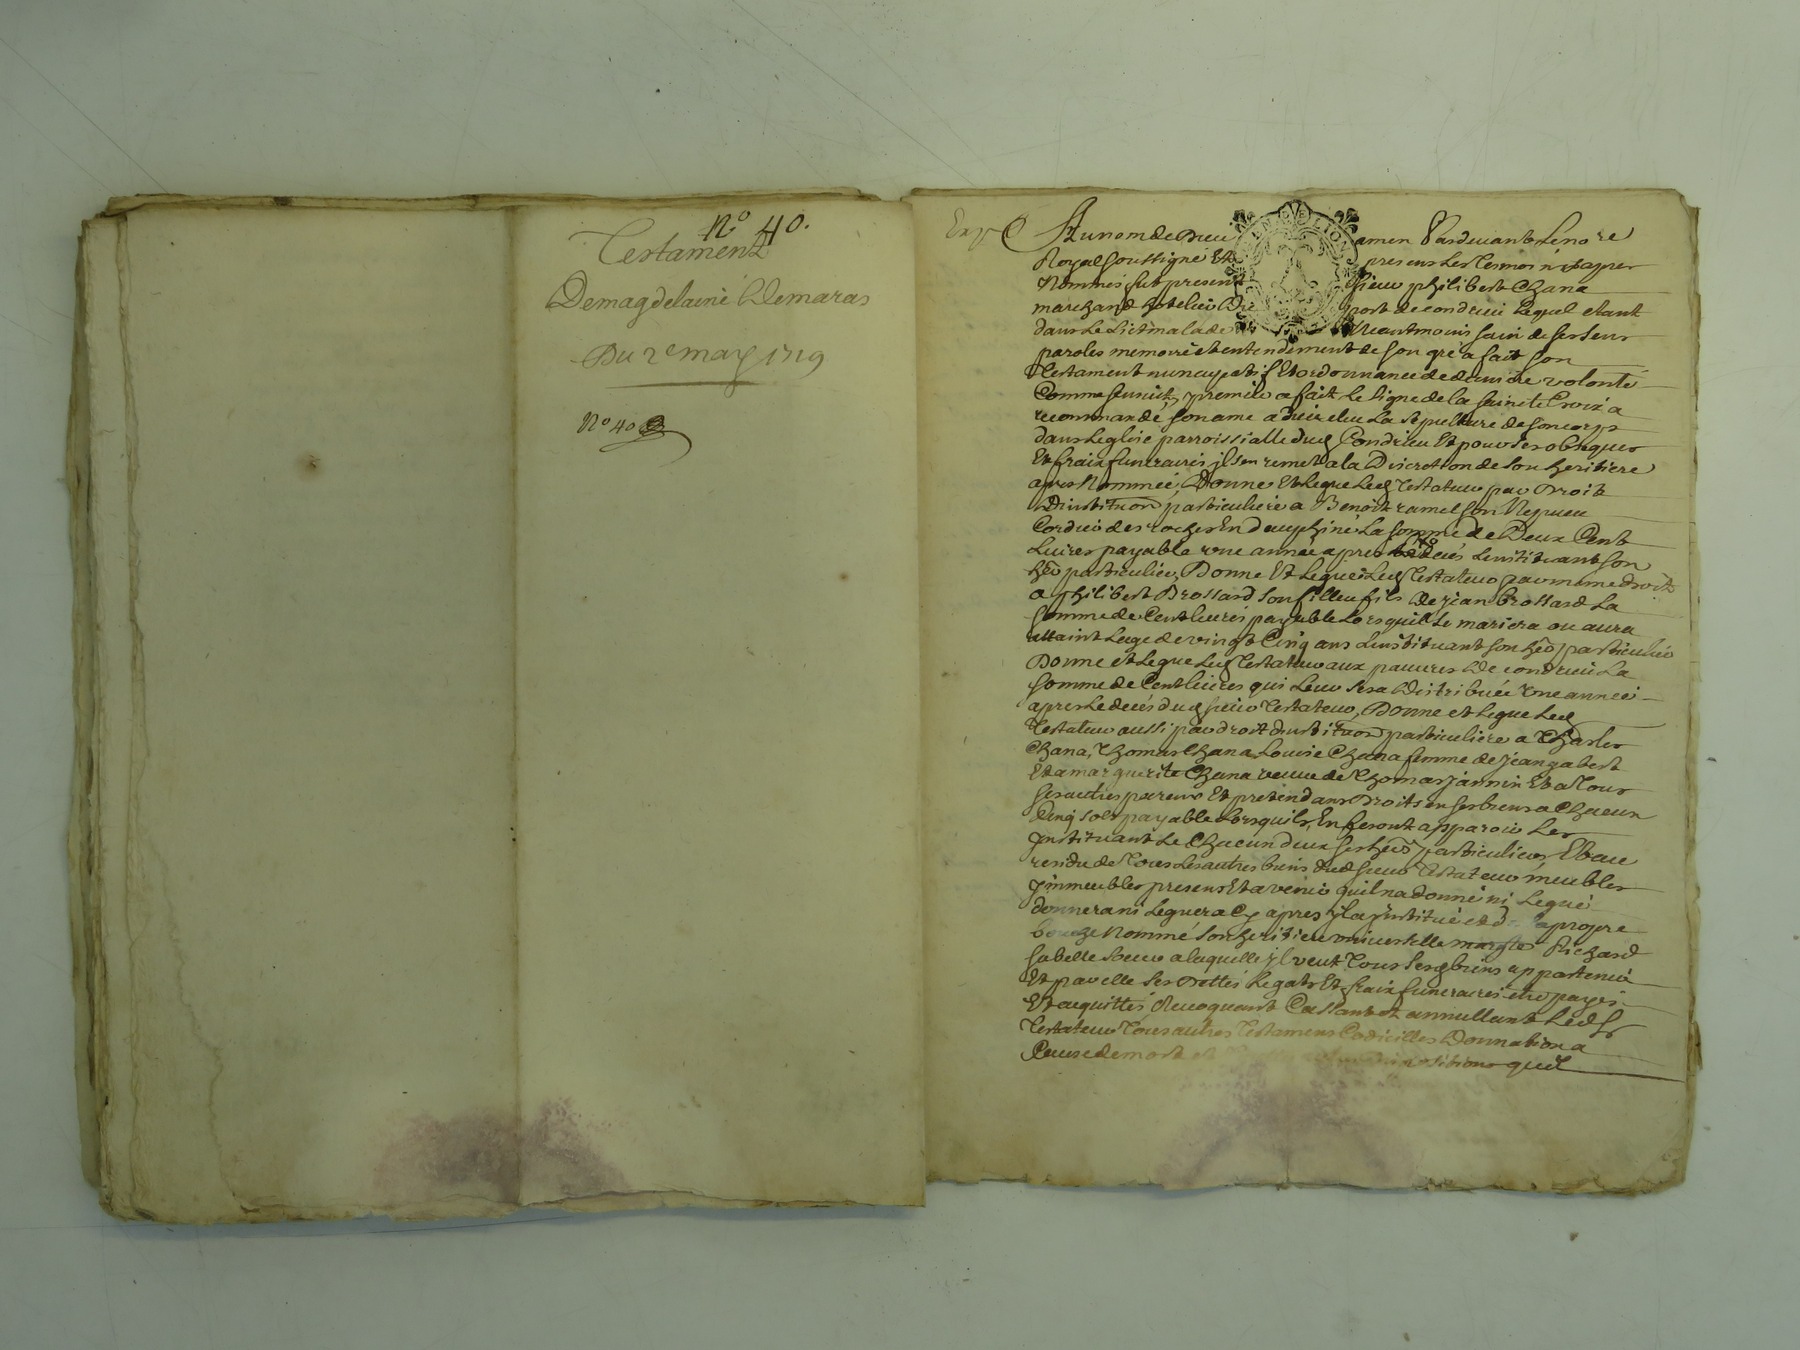 No 40.
Testament
De magdelaine Demaras
Du 2e may 1719
No 40
Exp
Au nom de Dieu amen Pardevant Le no.re
Royal soussigné Et presens Les tesmoins apres
Nommés fut present sieur philibert Chana
marchand hotelier Du port de condrieu Lequel etant
dans Le Lict malade Neantmoins sain de ses sens
paroles memoire et entendement de son gre a fait son
Testament nuncupatif Et ordonnance de derniere volonté
Comme sensuit, premier a fait Le signe de la sainte Croix a
recommandé son ame a dieu eleu La sepulture de son corps
dans Leglise parroissialle dud Condrieu Et pour ses obseques
Et fraix funeraires jl sen remet a la Discretion de son heritiere
apres Nommée, Donne Et Legue Led Testateur par Droit
Dinstitution particuliere a Benoit ramel son Nepveu
des roches En dauphiné La somme de Deux Cent
Livres payable une année apres decés Linstituant son
her particulier, Donne Et Legue Led Testateur par mesme droit
a philibert Brossard son filleu fils De jean brossard La
somme de Cent livres payable Lorsquil Se mariera ou aura
attaint Lage de vingt Cinq ans Linstituant son her particulier
Donne et Legue Led Testateur aux pauvres De condrieu La
somme de Cent livres qui Leur sera Distribuée une année
apres Le decés dud sieur Testateur, Donne et Legue Led
Testateur aussi par droit dinstitution particuliere a Charles
Chana, Thomas Chana Louise Chana femme de jean gabert
Et a marguerite Chana veuve de Thomas jannin Et a Tous
ses autres parens Et pretendans Droits en ses biens a Chacun
Cinq sols payable Lorsquils En feront apparoir Les
jnstituant Le Chacun deux ses her particuliers Et au
residu de Tous Les autres biens dud sieur Testateur meubles
jmmeubles presens Et avenir quil na donné ni Legué
donnera ni Leguera Cy apres jl a jnstitué et propre
bouche Nommé son heritiere universelle Richard
sa belle Soeur a laquelle jl veut Tous sesd biens appartenir
Et par elle ses Dettes Legats Et fraix funeraires etre payés
Et acquittés Revoquant Cassant et annullant Led Sr
Testateur Tous autres Testamens Codicilles Donnation a
Cause de mort et quil